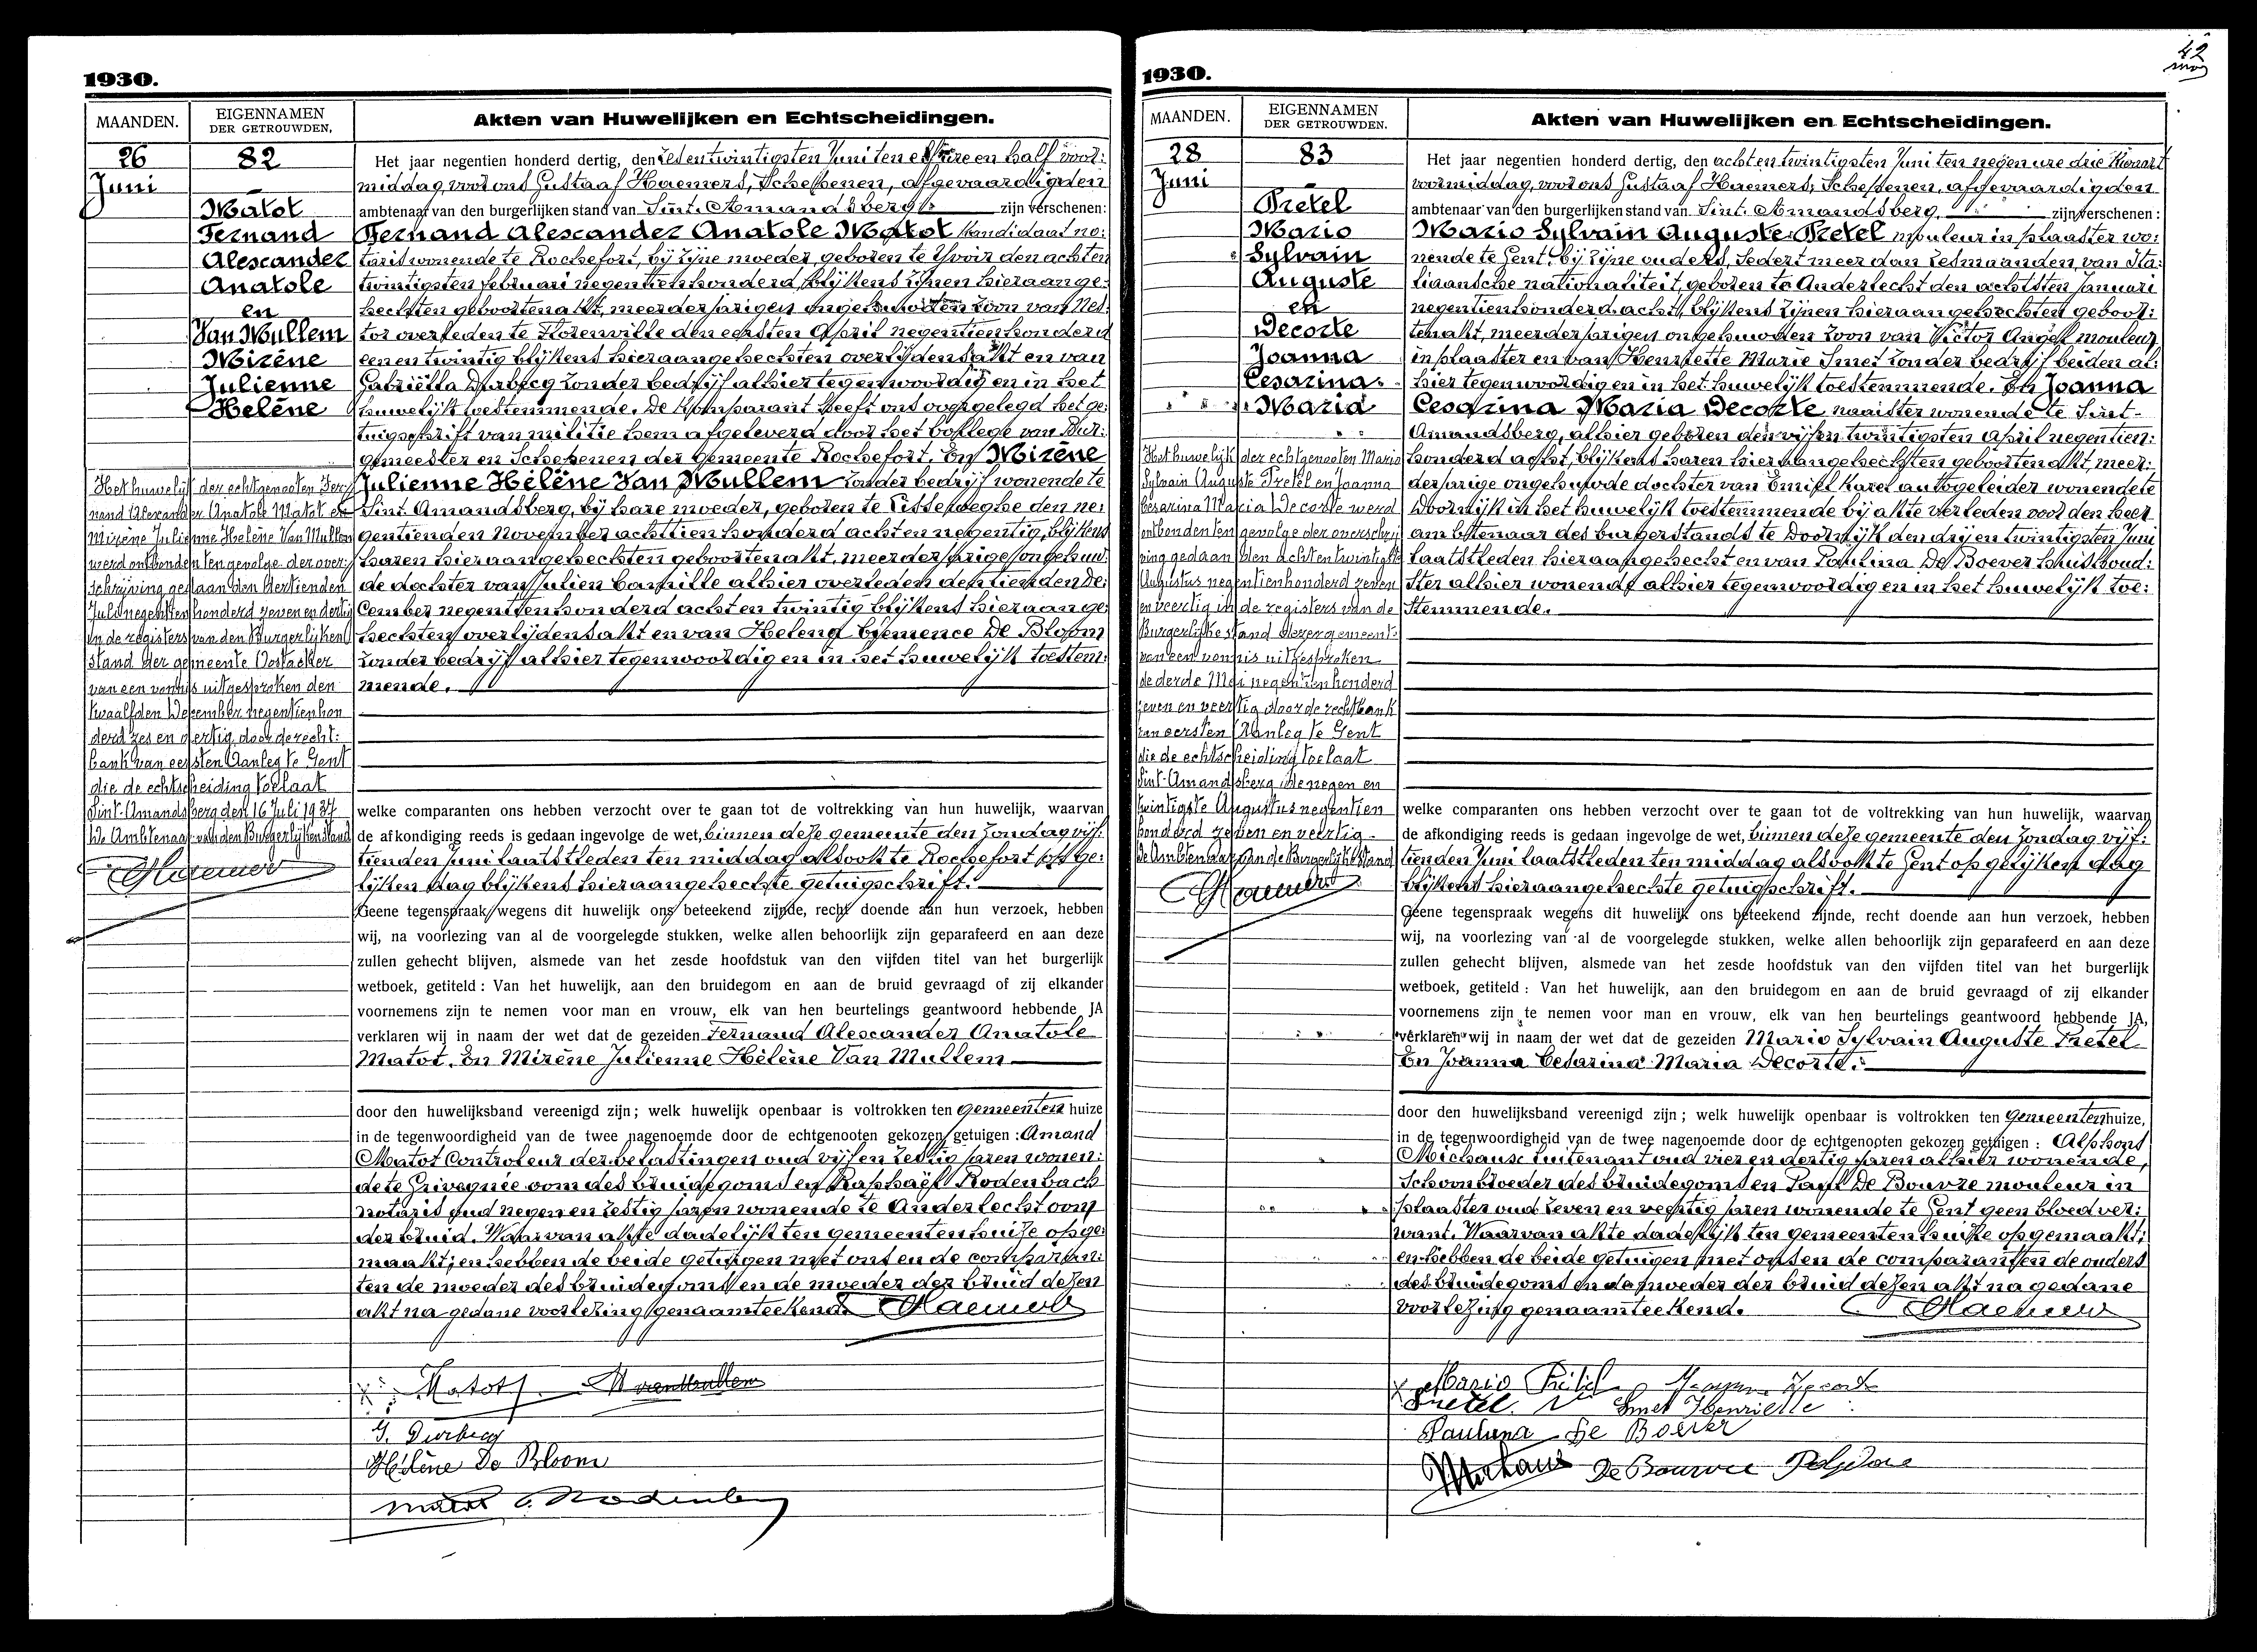 1930.
MAANDEN.
EIGENNAMEN
DER GETROUWDEN,
Akten van Huwelijken en Echtscheidingen.
26
Juni
82
Matot
Fernand
Alexander
Anatole
en
Van Mullem
Mirène
Julienne
Helène
Het jaar negentien honderd dertig, den zesentwintigsten Juni ten elf ure en half voor:
middag, voor ons Gustaaf Haemers, Schepenen, afgevaardigden
ambtenaar van den burgerlijken stand van Sint-Amandsberg zijn verschenen:
Fernand Alexander Anatole Matot kandidaat no:
taris wonende te Rochefort, bij zijne moeder, geboren te Yvoir den achten
twintigsten februari negentienhonderd, blijkens zijnen hieraange:
hechten geboortenakt, meerderjarigen ongehuwden zoon van Nes:
tor overleden te Florenville den eersten April negentienhonderd
eenentwintig blijkens hieraangehechten overlijdensakt en van
Gabriëlla Durbecq zonder bedrijf alhier tegenwoordig en in het
huwelijk toestemmende. De komparant heeft ons overgelegd het ge:
tuigschrift van militie hem afgeleverd door het kollege van Bur:
gemeester en Schepenen der Gemeente Rochefort. En Mirène
Julienne Hélène Van Mullem zonder bedrijf wonende te
Sint Amandsberg, bij hare moeder, geboren te Lisseweghe den ne:
gentienden November achttien honderd achtennegentig, blijkens
haren hieraangehechten geboortenakt, meerderjarige ongehuw:
de dochter van Julien Camille alhier overleden den tienden De:
cember negentienhonderd achtentwintig blijkens hieraange:
hechten overlijdensakt en van Helena Clemence De Bloom
zonder bedrijf alhier tegenwoordig en in het huwelijk toestem:
mende.
Het huwelijk der echtgenooten Fer:
nand Alexander Anatole Matot en
Mirène Julienne Helène Van Mullem
werd ontbonden ten gevolge der over:
schrijving gedaan den dertienden
Juli negentienhonderd zeven en dertig
in de registers van den Burgerlijken
stand der gemeente Oostacker
van een vonnis uitgesproken den
twaalfden December negentienhon
derd zes en dertig door de recht:
bank van eersten Aanleg te Gent
die de echtscheiding toelaat
Sint-Amandsberg den 16 Juli 1937
De Ambtenaar van den Burgerlijken Stand
Haemers
welke comparanten ons hebben verzocht over te gaan tot de voltrekking van hun huwelijk, waarvan
de afkondiging reeds is gedaan ingevolge de wet, binnen deze gemeente den Zondag vijf:
tienden Juni laatstleden ten middag alsook te Rochefort op ge:
lijken dag blijkens hieraangehechte getuigschrift.
Geene tegenspraak wegens dit huwelijk ons beteekend zijnde, recht doende aan hun verzoek, hebben
wij, na voorlezing van al de voorgelegde stukken, welke allen behoorlijk zijn geparafeerd en aan deze
zullen gehecht blijven, alsmede van het zesde hoofdstuk van den vijfden titel van het burgerlijk
wetboek, getiteld : Van het huwelijk, aan den bruidegom en aan de bruid gevraagd of zij elkander
voornemens zijn te nemen voor man en vrouw, elk van hen beurtelings geantwoord hebbende JA
verklaren wij in naam der wet dat de gezeiden Fernand Alexander Anatole
Matot. En Mirène Julienne Hélène Van Mullem
door den huwelijksband vereenigd zijn ; welk huwelijk openbaar is voltrokken ten Gemeenten huize
in de tegenwoordigheid van de twee nagenoemde door de echtgenooten gekozen getuigen : Amand
Matot Controleur der belastingen oud vijfenzestig jaren wonen:
de te Grivegnée oom des bruidegoms en Raphaël Rodenbach
notaris oud negen en zestig jaren wonende te Anderlecht oom
der bruid. Waarvan akte dadelijk ten gemeentenhuize opge:
maakt; en hebben de beide getuigen met ons en de comparan:
ten de moeder des bruidegoms en de moeder der bruid dezen
akt na gedane voorlezing genaamteekend. Haemers
Matot M vanMullem
G. Durbecq
Hélène De Bloom
Matot Rodenbach
1930.
42
MAANDEN.
EIGENNAMEN
DER GETROUWDEN.
Akten van Huwelijken en Echtscheidingen.
28
Juni
83
Pretel
Mario
Sylvain
Auguste
en
Decorte
Joanna
Cesarina
Maria
Het jaar negentien honderd dertig, den achtentwintigsten Juni ten negen ure drie kwaart
voormiddag, voor ons Gustaaf Haemers, Schepenen, afgevaardigden
ambtenaar van den burgerlijken stand van Sint-Amandsberg, zijn verschenen :
Mario Sylvain Auguste Pretel mouleur in plaaster wo:
nende te Gent, bij zijne ouders, sedert meer dan zesmaanden, van Ita:
liaansche nationaliteit, geboren te Anderlecht den achtsten Januari
negentienhonderd acht, blijkens zijnen hieraangehechten geboor:
tenakt, meerderjarigen ongehuwden zoon van Victor Angel mouleur
in plaaster en van Henriette Marie Smet zonder bedrijf beiden al:
hier tegenwoordig en in het huwelijk toestemmende. En Joanna
Cesarina Maria Decorte naaister wonende te Sint-
Amandsberg, alhier geboren den vijfentwintigsten April negentien:
honderd acht, blijkens haren hieraangehechten geboortenakt, meer:
derjarige ongehuwde dochter van Emiel Karel autogeleider wonende te
Doornijk in het huwelijk toestemmende bij akte verleden voor den heer
ambtenaar des burgerstands te Doornijk den drijentwintigsten Juni
laatstleden hieraangehecht en van Paulina De Boever huishoud:
ster alhier wonende alhier tegenwoordig en in het huwelijk toe:
stemmende.
Het huwelijk der echtgenooten Mario
Sylvain Auguste Pretel en Joanna
Cesarina Maria Decorte werd
ontbonden ten gevolge der overschrij
ving gedaan den achtentwintigste
Augustus negentienhonderd zeven
en veertig in de registers van de
Burgerlijke stand dezer gemeente
van een vonnis uitgesproken
de derde Mei negentienhonderd
zeven en veertig door de rechtbank
van eersten Aanleg te Gent
die de echtscheiding toelaat
Sint-Amandsberg de negen en
twintigste Augustus negentien
honderd zeven en veertig.
De Ambtenaar van de Burgerlijke Stand
Haemers
welke comparanten ons hebben verzocht over te gaan tot de voltrekking van hun huwelijk, waarvan
de afkondiging reeds is gedaan ingevolge de wet, binnen deze gemeente den Zondag vijf:
tienden Juni laatstleden ten middag alsook te Gent op gelijken dag
blijkens hieraangehechte getuigschrift.
Geene tegenspraak wegens dit huwelijk ons beteekend zijnde, recht doende aan hun verzoek, hebben
wij, na voorlezing van al de voorgelegde stukken, welke allen behoorlijk zijn geparafeerd en aan deze
zullen gehecht blijven, alsmede van het zesde hoofdstuk van den vijfden titel van het burgerlijk
wetboek, getiteld : Van het huwelijk, aan den bruidegom en aan de bruid gevraagd of zij elkander
voornemens zijn te nemen voor man en vrouw, elk van hen beurtelings geantwoord hebbende JA,
verklaren wij in naam der wet dat de gezeiden Mario Sylvain Auguste Pretel
En Joanna Cesarina Maria Decorte.
door den huwelijksband vereenigd zijn ; welk huwelijk openbaar is voltrokken ten Gemeentenhuize,
in de tegenwoordigheid van de twee nagenoemde door de echtgenooten gekozen getuigen : Alphons
Michaux luitenant oud vier en dertig jaren alhier wonende,
Schoonbroeder des bruidegoms en De Bouvre mouleur in
plaaster oud zeven en veertig jaren wonende te Gent geen bloedver:
want. Waarvan akte dadelijk ten gemeentenhuize opgemaakt;
en hebben de beide getuigen met ons en de comparanten de ouders
des bruidegoms en de moeder der bruid dezen akt na gedane
voorlezing genaamteekend. Haemers
Mario Pretel Decorte
Pretel V Smet Henriette
Paulina De Boever
Michaux De Bouvre